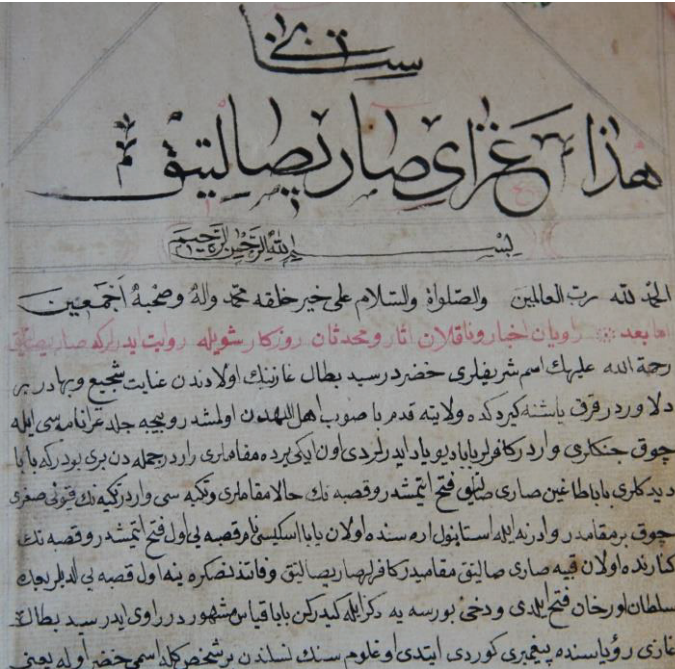 هذا غزای صاری صالتیق
بسم الله الرحمن الرحیم
الحمد لله رب العالمین والصلواة والسلام علی خیر خلقه محمد واله وصحبه اجمعین
اما بعد راویان اخبار وناقلان اثار ومحدثان روزکار شویله روایت ایدرلرکه صاری صالتیق
رحمة الله علیهك اسم شریفلری خضردر سید بطال غازینك اولادندن غایت شجیع وبهادر بر
دلاوردر قرق یاشنه کیردکده ولایته قدم باصوب اهل الله دن اولمشدر ونیجه جلد غزانامه سی ایله
چوق جنکلری واردر کافرلر بابا دیو یاد ایدرلردی اون ایکی یرده مقاملری واردر جمله دن بری بودرکه بابا
دیدکلری بابا طاغین صاری صالتیق فتح ایتمشدر وقصبه نك حالا مقاملری وتکیه سی واردر تکیه نك قتونی صغری
چوق بر مقامدر وادرنه ایله استانبول اره سنده اولان بابا اسکیسی نام قصبه یی اول فتح ایتمشدر وقصبه نك
کنارنده اولان قبه صاری صالتیق مقامیدر کافرلر صاری صالتیق وفاتندنصکره ینه اول قصبه یی الدیلر بعده
سلطان اورخان فتح ایلدی ودخی بورسه یه دکز ایله کیدرکن بابا قیاس مشهوردر راوی ایدر سید بطال
غازی رؤیاسنده پیغمبری کوردی ایتدی اوغلوم سنك نسلندن بر شخص کله اسمی خضر اوله یعنی